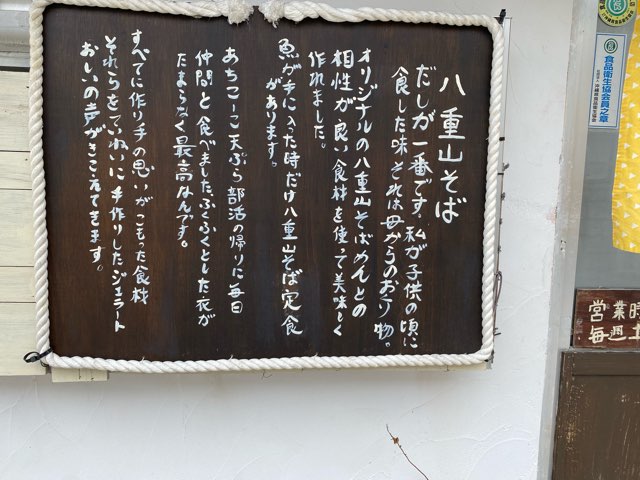 八重山そば
だしが一番です。私が子供の頃に
食した味それは母からのおくり物。
オリジナルの八重山そばめんとの
相性が良い食材を使って美味しく
作れました。
魚が手に入った時だけ八重山そば定食
があります。
あちこーこ天ぷら部活の帰りに毎日
仲間と食べましたぷくぷくとした衣が
たまらなく最高なんです。
すべてに作り手の思いがこもった食材
それらをていねいに手作りしたジェラート
おいの声がきこえてきます。
食品衛生協会会員之章
営業時
毎週土